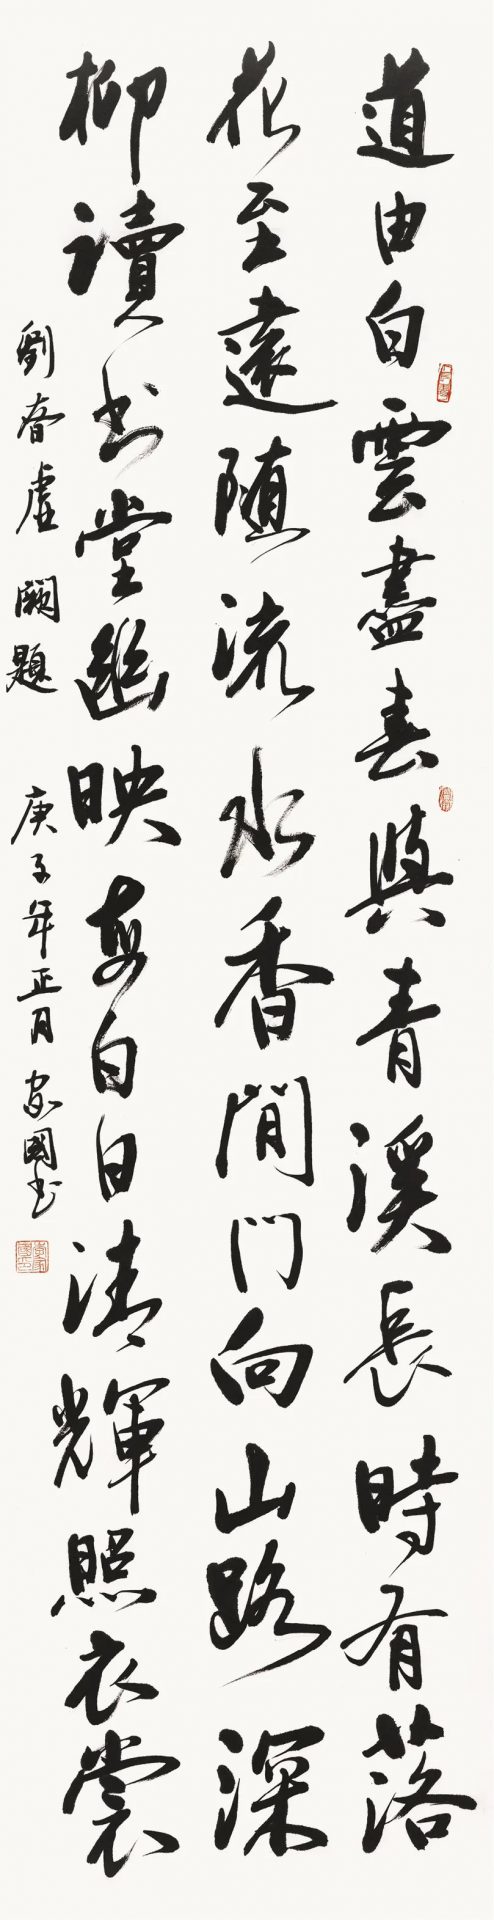 道由白雲盡春與青溪長時有落
花至遠隨流水香閒門向山路深
柳讀書堂幽映每白日清輝照衣裳
劉眘虛 闕題 庚子年正月 家國書